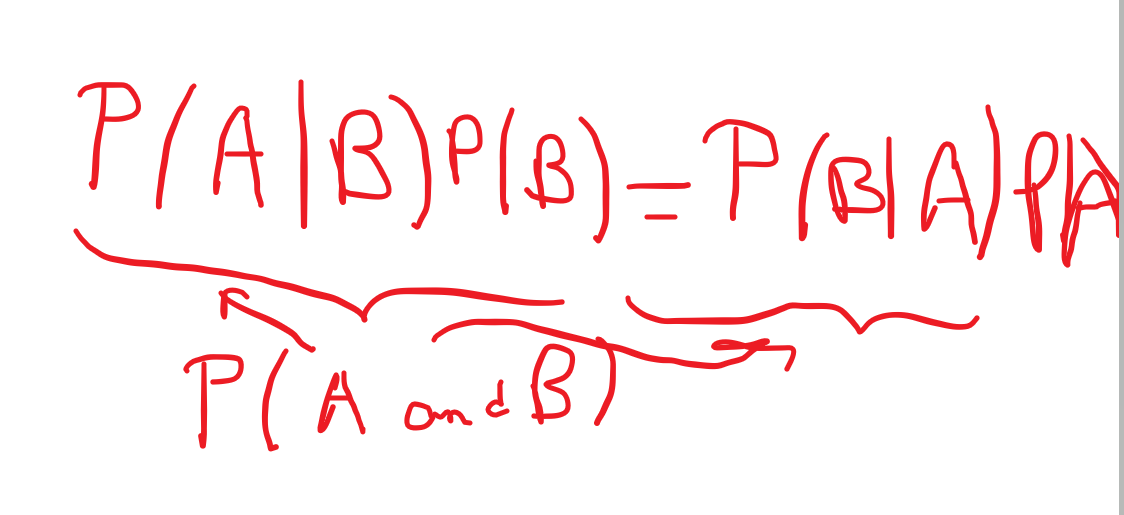 P(A|B)P(B)=P(B|A)P(A
P(A and B)